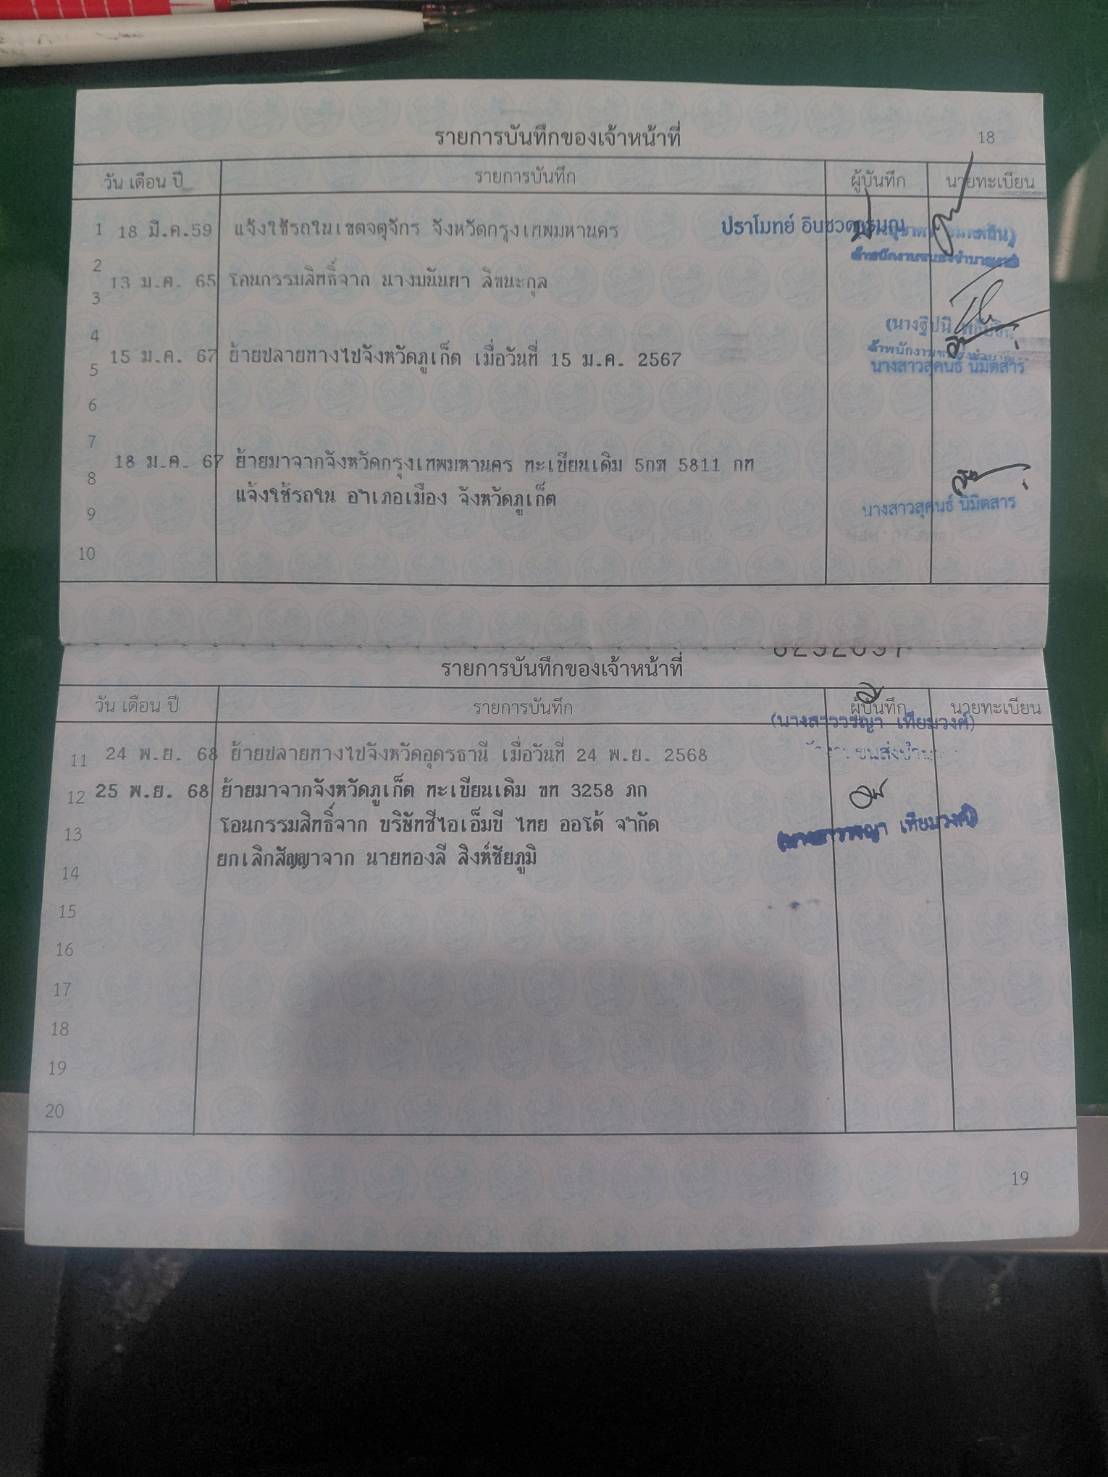 รายการบันทึกของเจ้าหน้าที่ 18
วัน เดือน ปี รายการบันทึก ผู้บันทึก นายทะเบียน
1 18 มี.ค.59 แจ้งใช้รถในเขตจตุจักร จังหวัดกรุงเทพมหานคร ปราโมทย์
2
13 ม.ค. 65 โอนกรรมสิทธิ์จาก
3
4
15 ม.ค. 67 ย้ายปลายทางไปจังหวัดภูเก็ต เมื่อวันที่ 15 ม.ค. 2567
5 นางสาวสุคนธ์ นิมิตสาร
6
7
18 ม.ค. 67 ย้ายมาจากจังหวัดกรุงเทพมหานคร ทะเบียนเดิม 5กท 5811 กท
8
แจ้งใช้รถใน อำเภอเมือง จังหวัดภูเก็ต
9 นางสาวสุคนธ์ นิมิตสาร
10
รายการบันทึกของเจ้าหน้าที่
วัน เดือน ปี รายการบันทึก ผู้บันทึก นายทะเบียน
11 24 พ.ย. 68 ย้ายปลายทางไปจังหวัดอุดรธานี เมื่อวันที่ 24 พ.ย. 2568
12 25 พ.ย. 68 ย้ายมาจากจังหวัดภูเก็ต ทะเบียนเดิม ขท 3258 ภก
13 โอนกรรมสิทธิ์จาก บริษัทซีไอเอ็มบี ไทย ออโต้ จำกัด
14 ยกเลิกสัญญาจาก นายทองลี สิงห์ชัยภูมิ
15
16
17
18
19
20
19